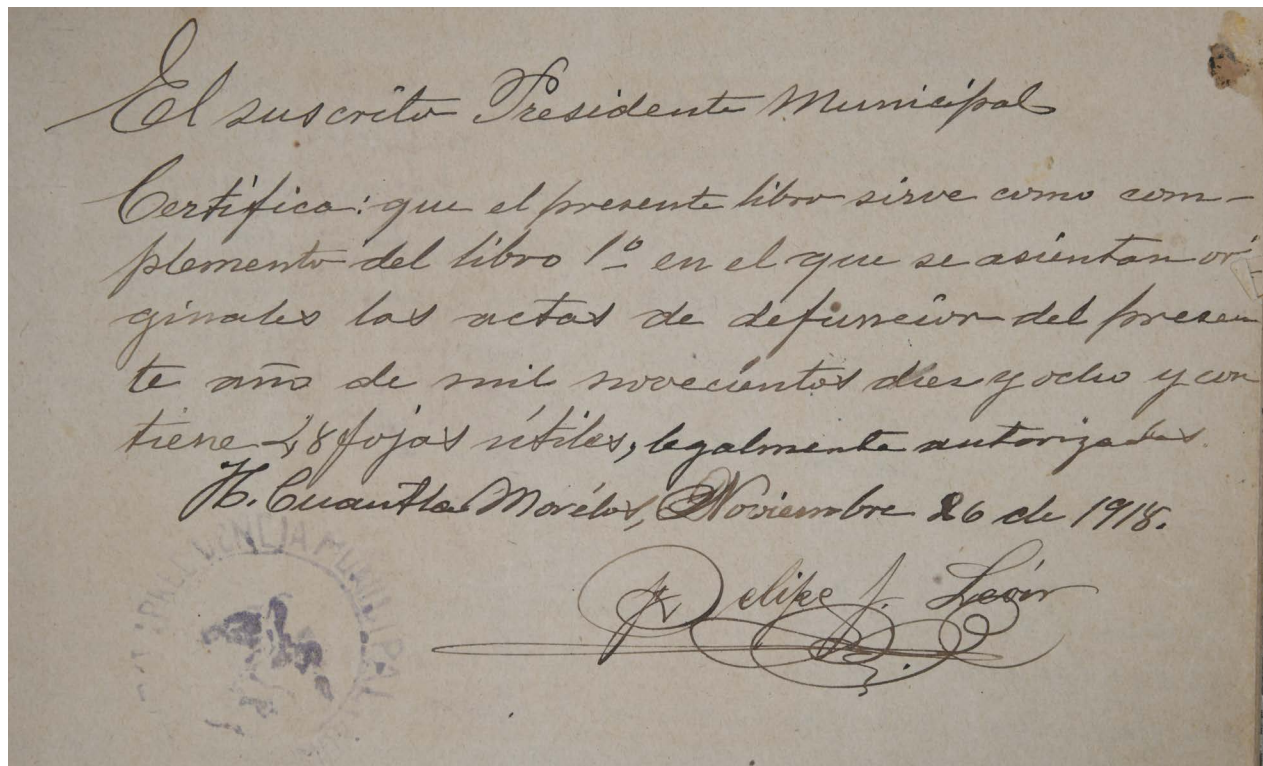 El suscrito Presidente Municipal
Certifica: que el presente libro sirve como com-
plemento del libro 1º en el que se asientan ori
ginales las actas de defuncion del presen
te año de mil novecientos diez y ocho y con
tiene 28 fojas útiles, legalmente autorizadas.
H. Cuautla Morelos, Noviembre 26 de 1918.
Felipe J. León
PRESIDENCIA MUNICIPAL